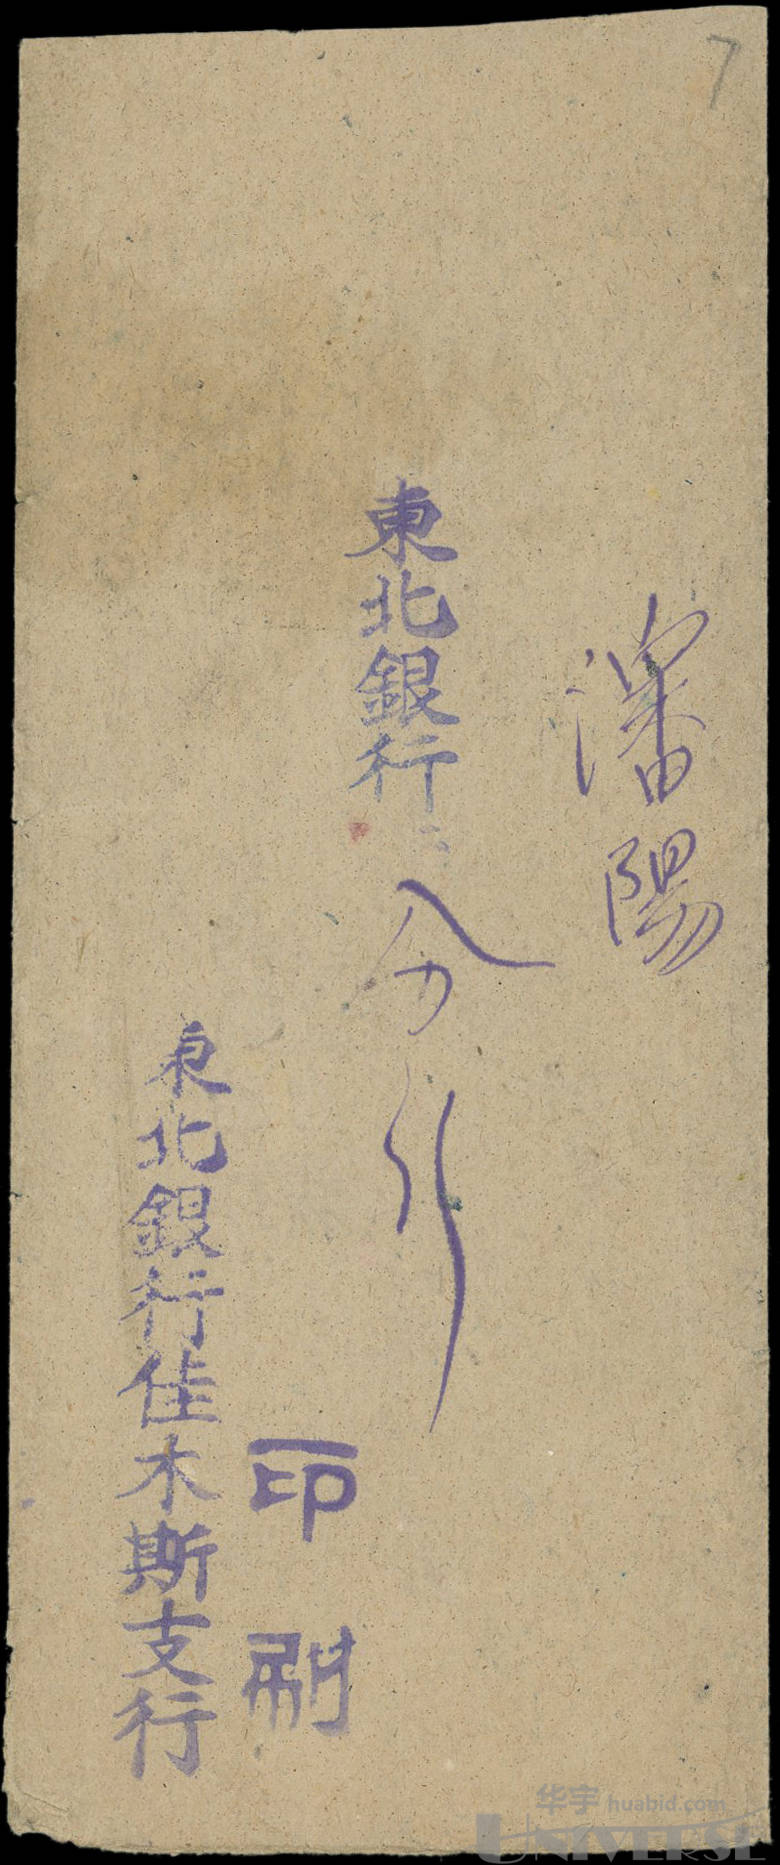 7
瀋陽
東北銀行
分行
印刷
東北銀行佳木斯支行
华宇 huabid.com
UNIVERSE